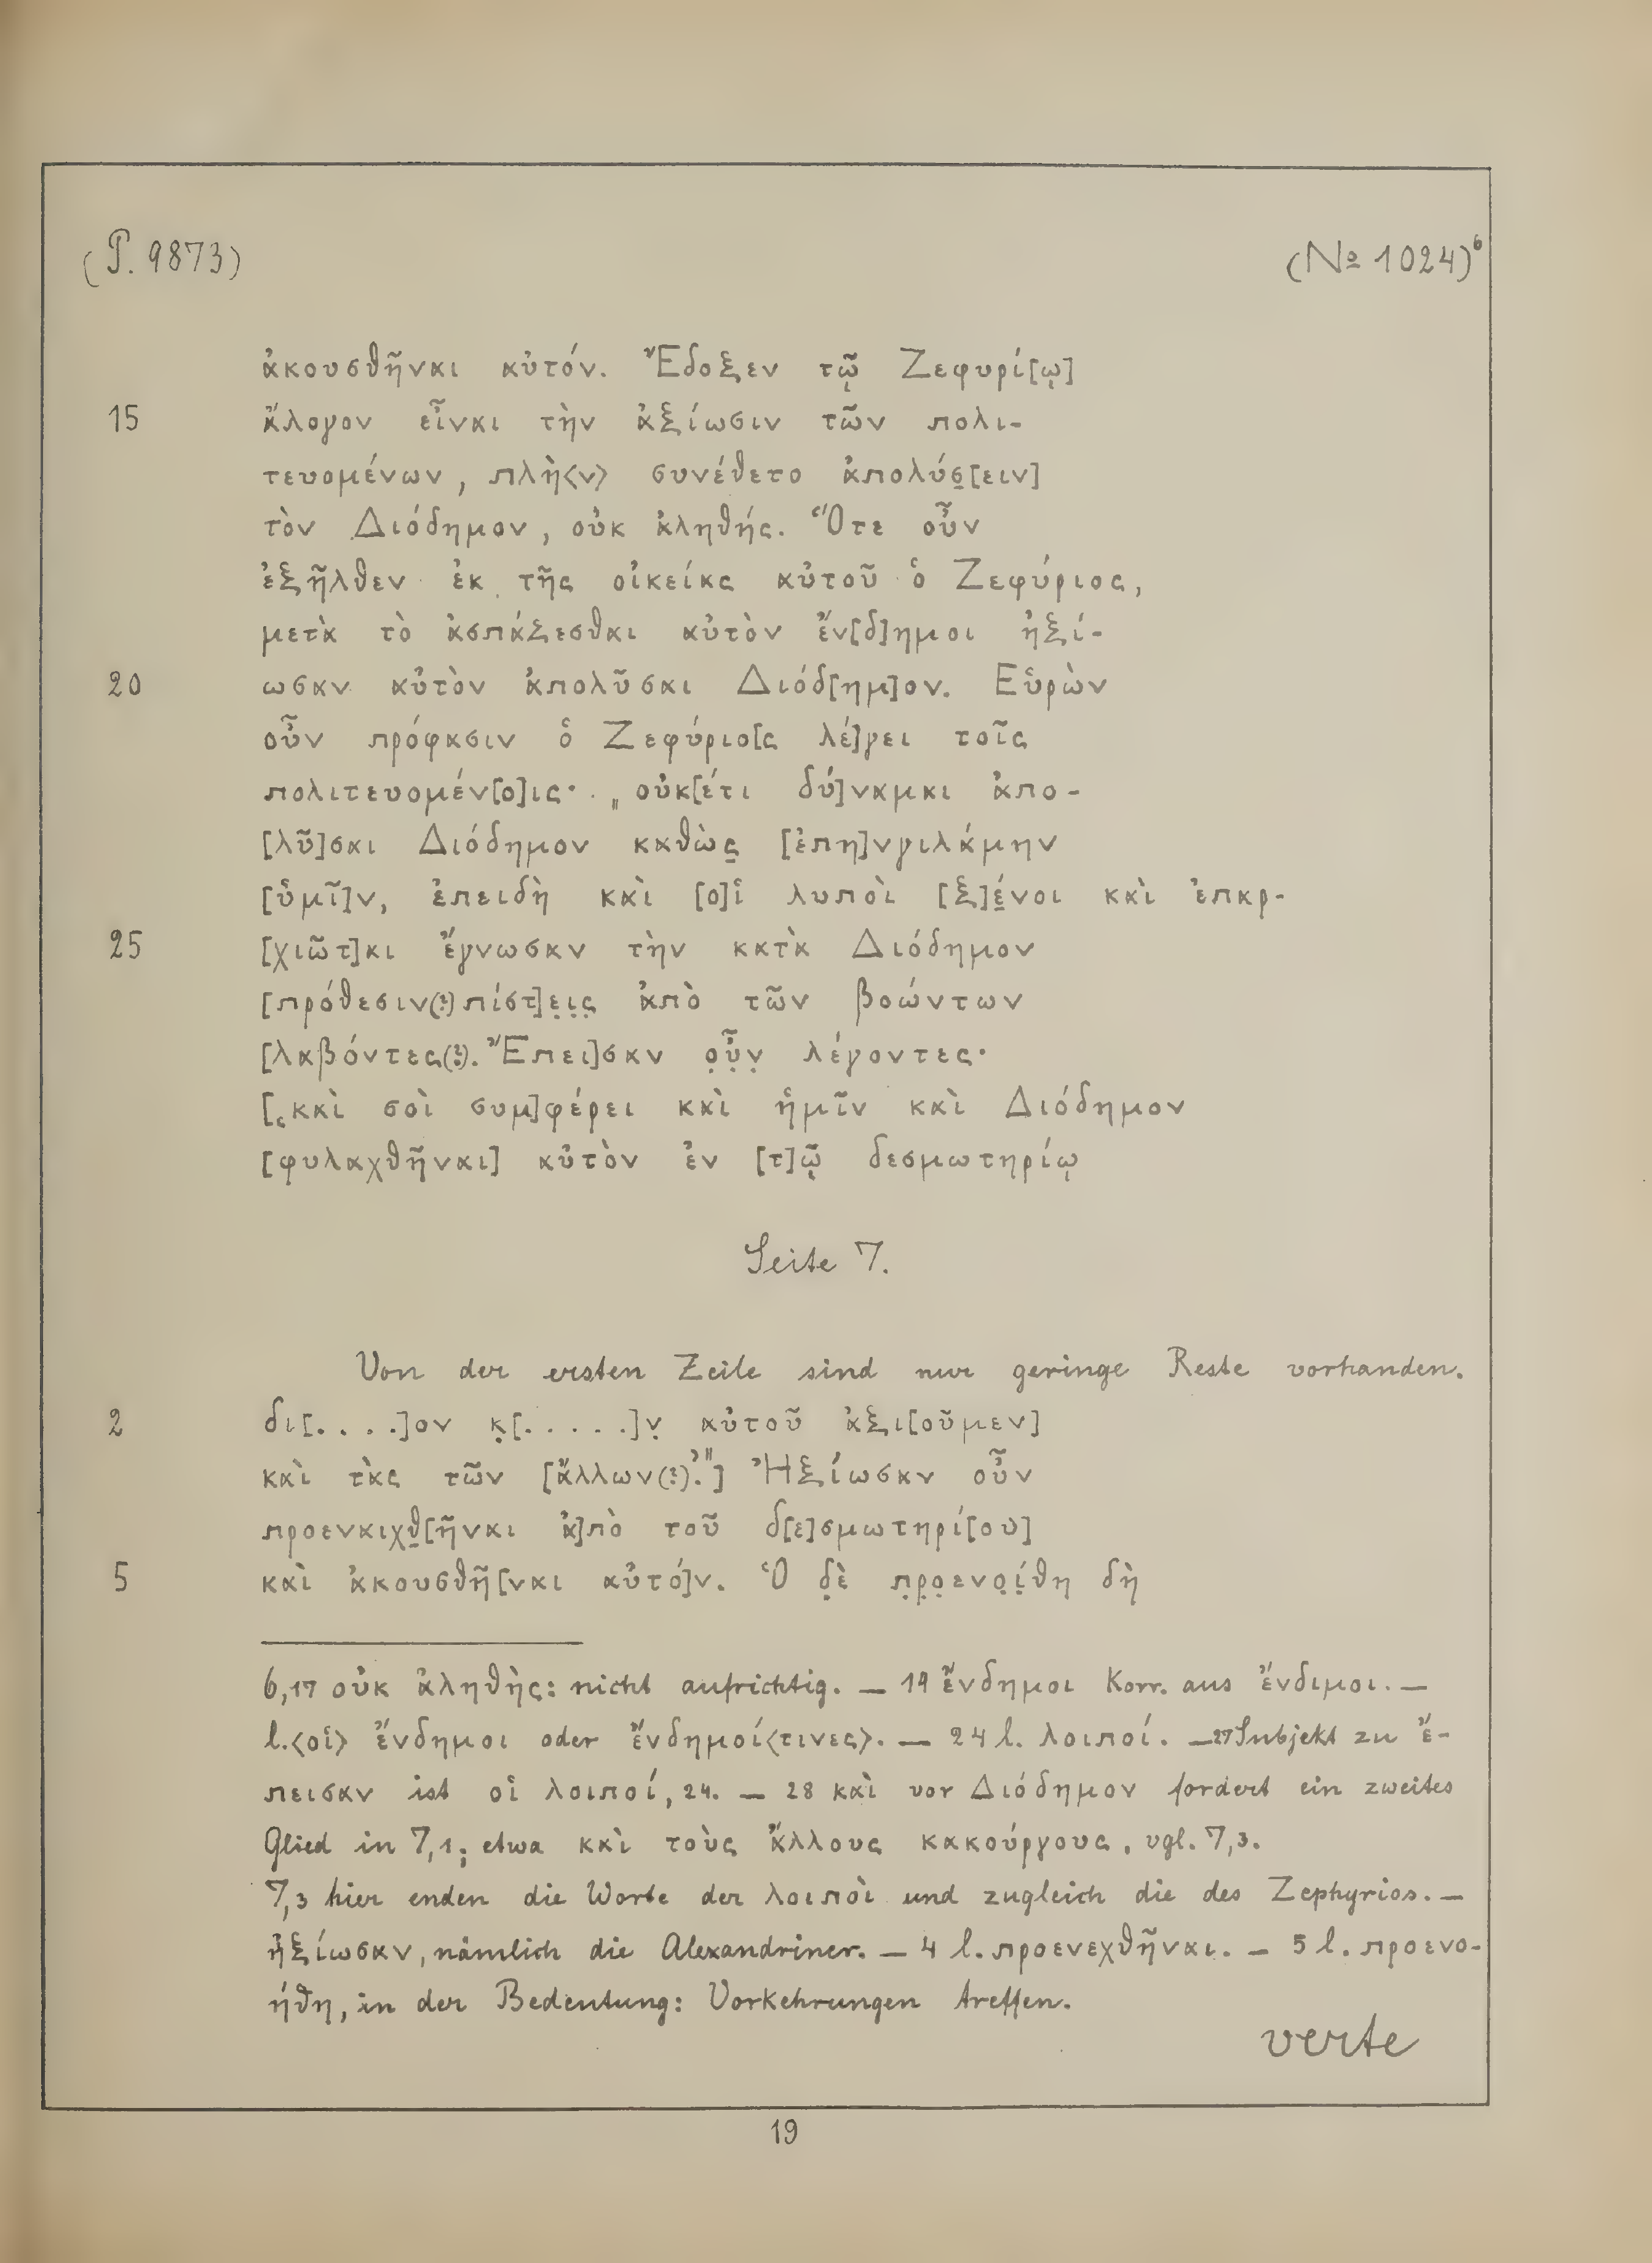 (P. 9873) (№ 1024)⁶
ἀκουσθῆναι αὐτόν. Ἔδοξεν τῷ Ζεφυρί[ῳ]
15 ἄλογον εἶναι τὴν ἀξίωσιν τῶν πολι-
τευομένων, πλὴ<ν> συνέθετο ἀπολύσ̣[ειν]
τὸν Διόδημον, οὐκ ἀληθής. Ὅτε οὖν
ἐξῆλθεν ἐκ τῆς οἰκείας αὐτοῦ ὁ Ζεφύριος,
μετὰ τὸ ἀσπάζεσθαι αὐτὸν ἔν[δ]ημοι ἠξί-
20 ωσαν αὐτὸν ἀπολῦσαι Διόδ[ημ]ον. Εὑρὼν
οὖν πρόφασιν ὁ Ζεφύριο[ς λέ]γει τοῖς
πολιτευομέν[ο]ις· „οὐκ[έτι δύ]ναμαι ἀπο-
[λῦ]σαι Διόδημον καθὼς̣ [ἐπη]νγιλάμην
[ὑμῖ]ν, ἐπειδὴ καὶ [ο]ἱ λυποὶ [ξ]έ̣νοι καὶ ἐπαρ-
25 [χιῶτ]αι ἔγνωσαν τὴν κατὰ Διόδημον
[πρόθεσιν(?) πίστ]ε̣ι̣ς̣ ἀπὸ τῶν βοώντων
[λαβόντες(?). Ἔπει]σαν ο̣ὖ̣ν̣ λέγοντες·
[‚καὶ σοὶ συμ]φέρει καὶ ἡμῖν καὶ Διόδημον
[φυλαχθῆναι] αὐτὸν ἐν [τ]ῷ δεσμωτηρίῳ
Seite 7.
Von der ersten Zeile sind nur geringe Reste vorhanden.
2 δι[. . . .]ον κ̣[. . . . .]ν̣ αὐτοῦ ἀξι[οῦμεν]
καὶ τὰς τῶν [ἄλλων(?).’”] Ἠξίωσαν οὖν
προεναιχθ̣[ῆναι ἀ]πὸ τοῦ δ[ε]σμωτηρί[ου]
5 καὶ ἀκουσθῆ[ναι αὐτό]ν. Ὁ δ̣ὲ π̣ρ̣ο̣ενο̣ί̣θη δὴ
6,17 οὐκ ἀληθὴς: nicht aufrichtig. — 19 ἔνδημοι Korr. aus ἔνδιμοι. —
l. <οἱ> ἔνδημοι oder ἔνδημοί <τινες>. — 24 l. λοιποί. — 27 Subjekt zu ἔ-
πεισαν ist οἱ λοιποί, 24. — 28 καὶ vor Διόδημον fordert ein zweites
Glied in 7,1; etwa καὶ τοὺς ἄλλους κακούργους, vgl. 7,3.
7,3 hier enden die Worte der λοιποὶ und zugleich die des Zephyrios. —
ἠξίωσαν, nämlich die Alexandriner. — 4 l. προενεχθῆναι. — 5 l. προενο-
ήθη, in der Bedeutung: Vorkehrungen treffen.
verte
19